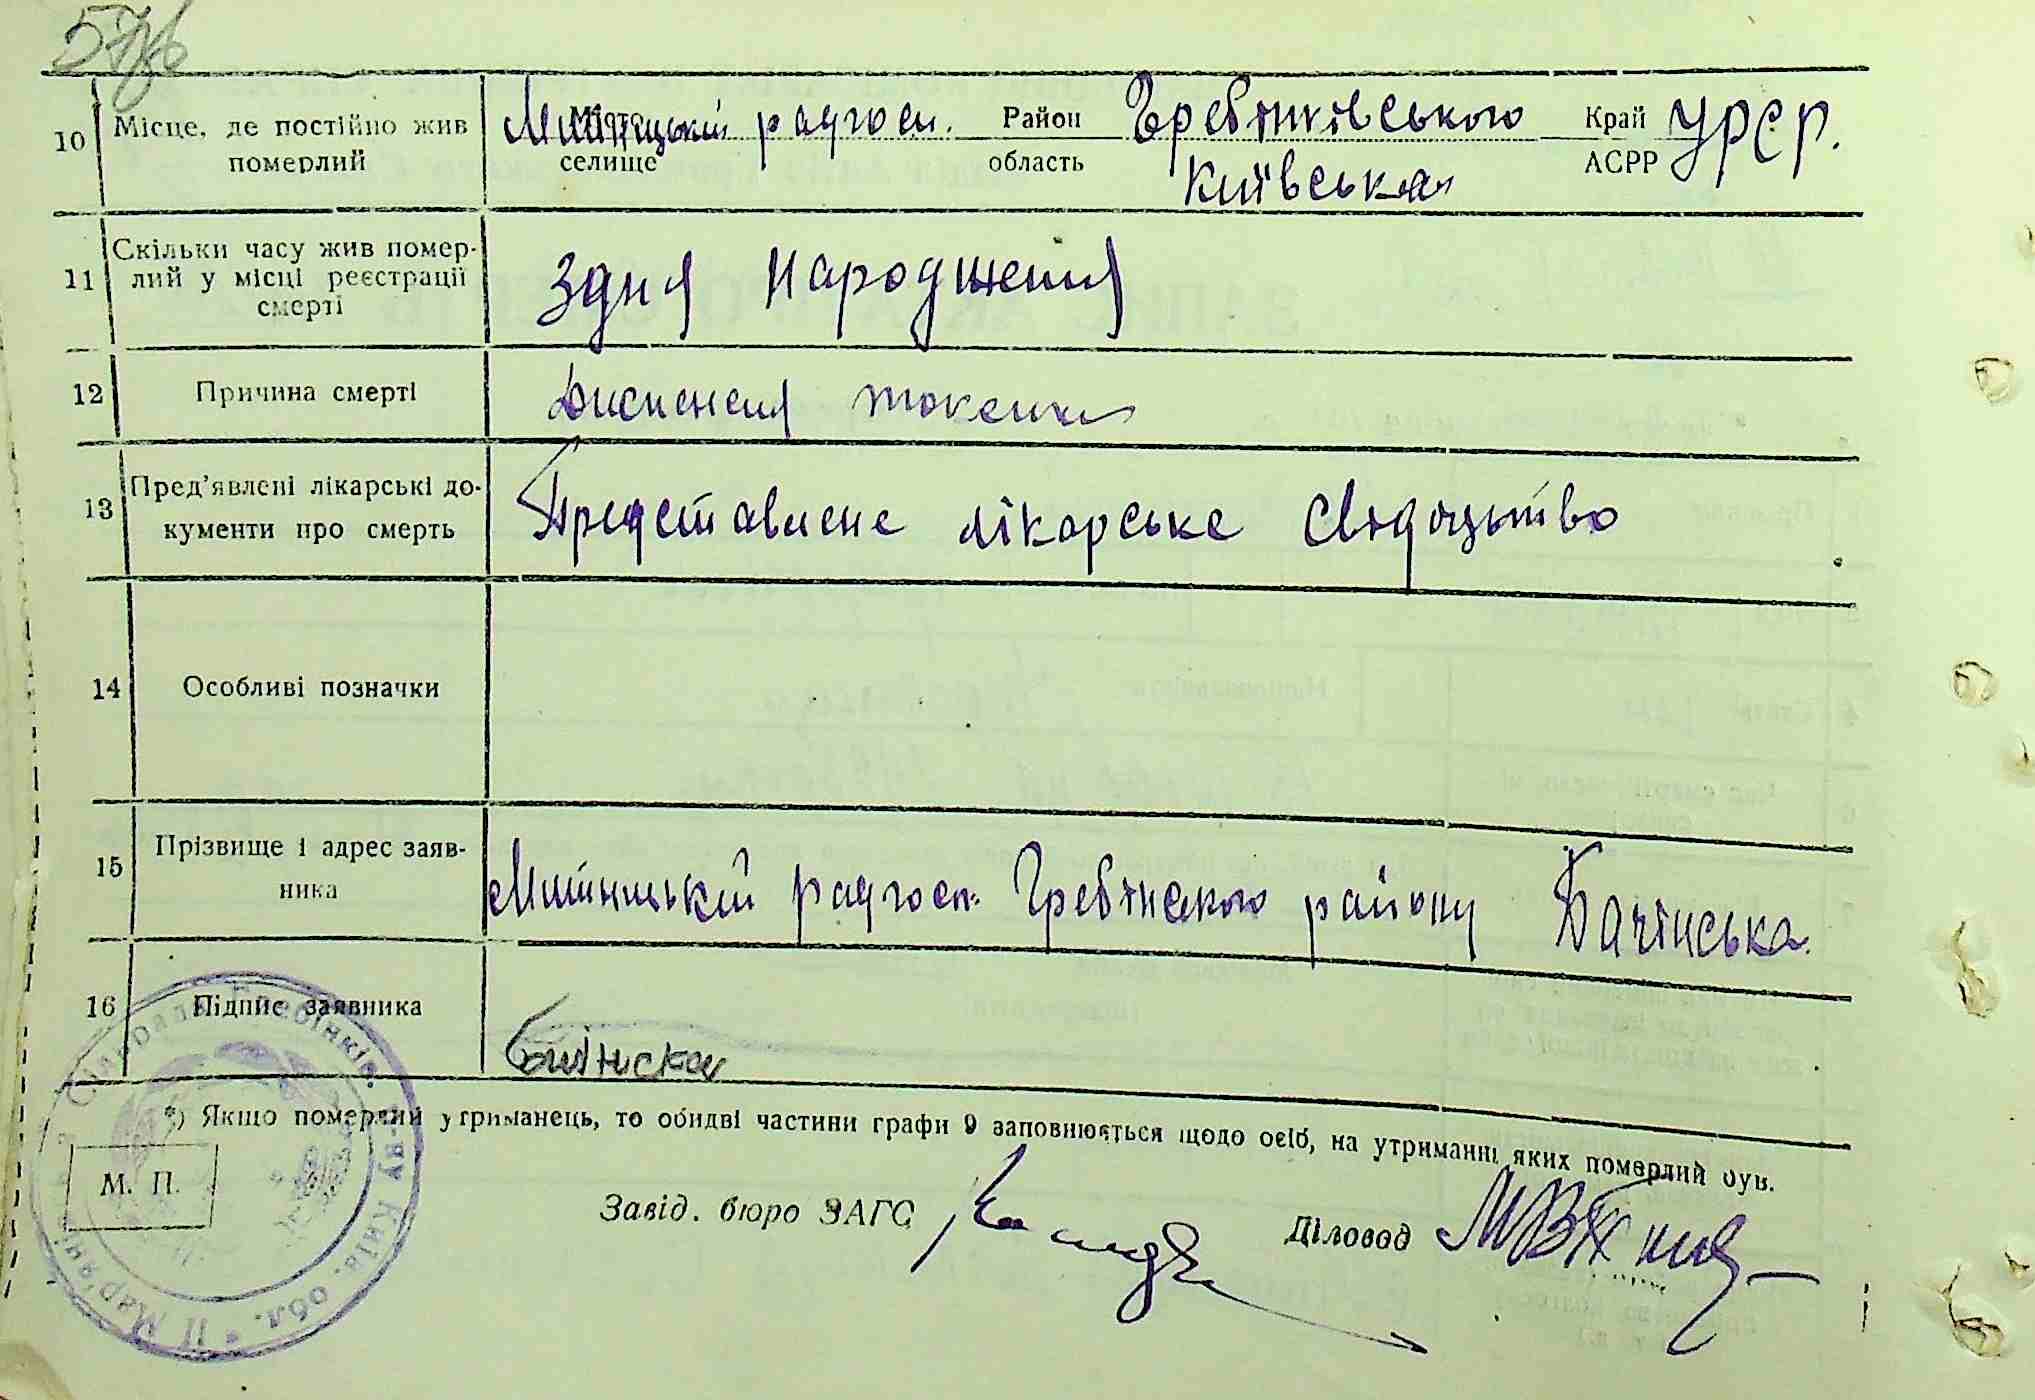 576
10 Місце, де постійно жив померлий
Місто селище Митницький радгосп. Район область Гребінківського Київська Край АСРР УРСР.
11 Скільки часу жив помер-
лий у місці реєстрації
смерті
З дня народження
12 Причина смерті
Диспепсия токсич
13 Пред'явлені лікарські до-
кументи про смерть
Представлене лікарське свідоцьтво
14 Особливі позначки
15 Прізвище і адрес заяв-
ника
Митницький радгосп. Гребінского району Бачінська.
16 Підпис заявника
*) Якщо померлий утриманець, то обидві частини графи 9 заповнюється щодо осіб, на утриманні яких померлий був.
М. П.
Завід. бюро ЗАГС
Діловод
Сільрада Гребінків. р-ну Київ. обл. * П Мар'ян